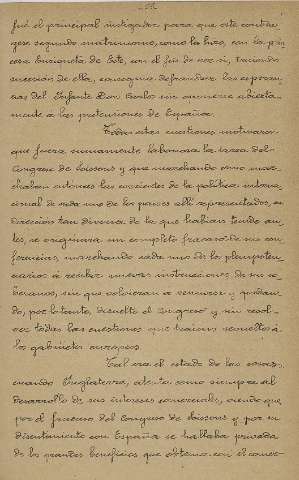 fué el principal instigador para que este contra-
gese segundo matrimonio, como lo hizo, con la prin
cesa Enriqueta de Este, con el fin de ver si, teniendo
sucesión de ella, conseguía defraudar las esperan-
zas del Infante Don Carlos sin oponerse abierta-
mente a las pretensiones de España.
Todas estas cuestiones motivaron
que fuera sumamente laboriosa la tarea del
Congreso de Soissons y que marchando como mar-
chaban entonces las corrientes de la política interna-
cional de cada uno de los paises allí representados, en
dirección tan diversa de la que habían tenido an-
tes, se originara un completo fracaso de sus con-
ferencias, marchando cada uno de los plenipoten-
ciarios a recibir nuevas instrucciones de sus so-
beranos, sin que volvieran a reunirse y quedan-
do, por lo tanto, disuelto el Congreso y sin resol-
ver todas las cuestiones que traían revueltos á
los gabinetes europeos.
Tal era el estado de las cosas,
cuando Inglaterra, atenta como siempre al
desarrollo de sus intereses comerciales, viendo que
por el fracaso del Congreso de Soissons y por su
disentimiento con España se hallaba privada
de los grandes beneficios que obtenía con el comer-